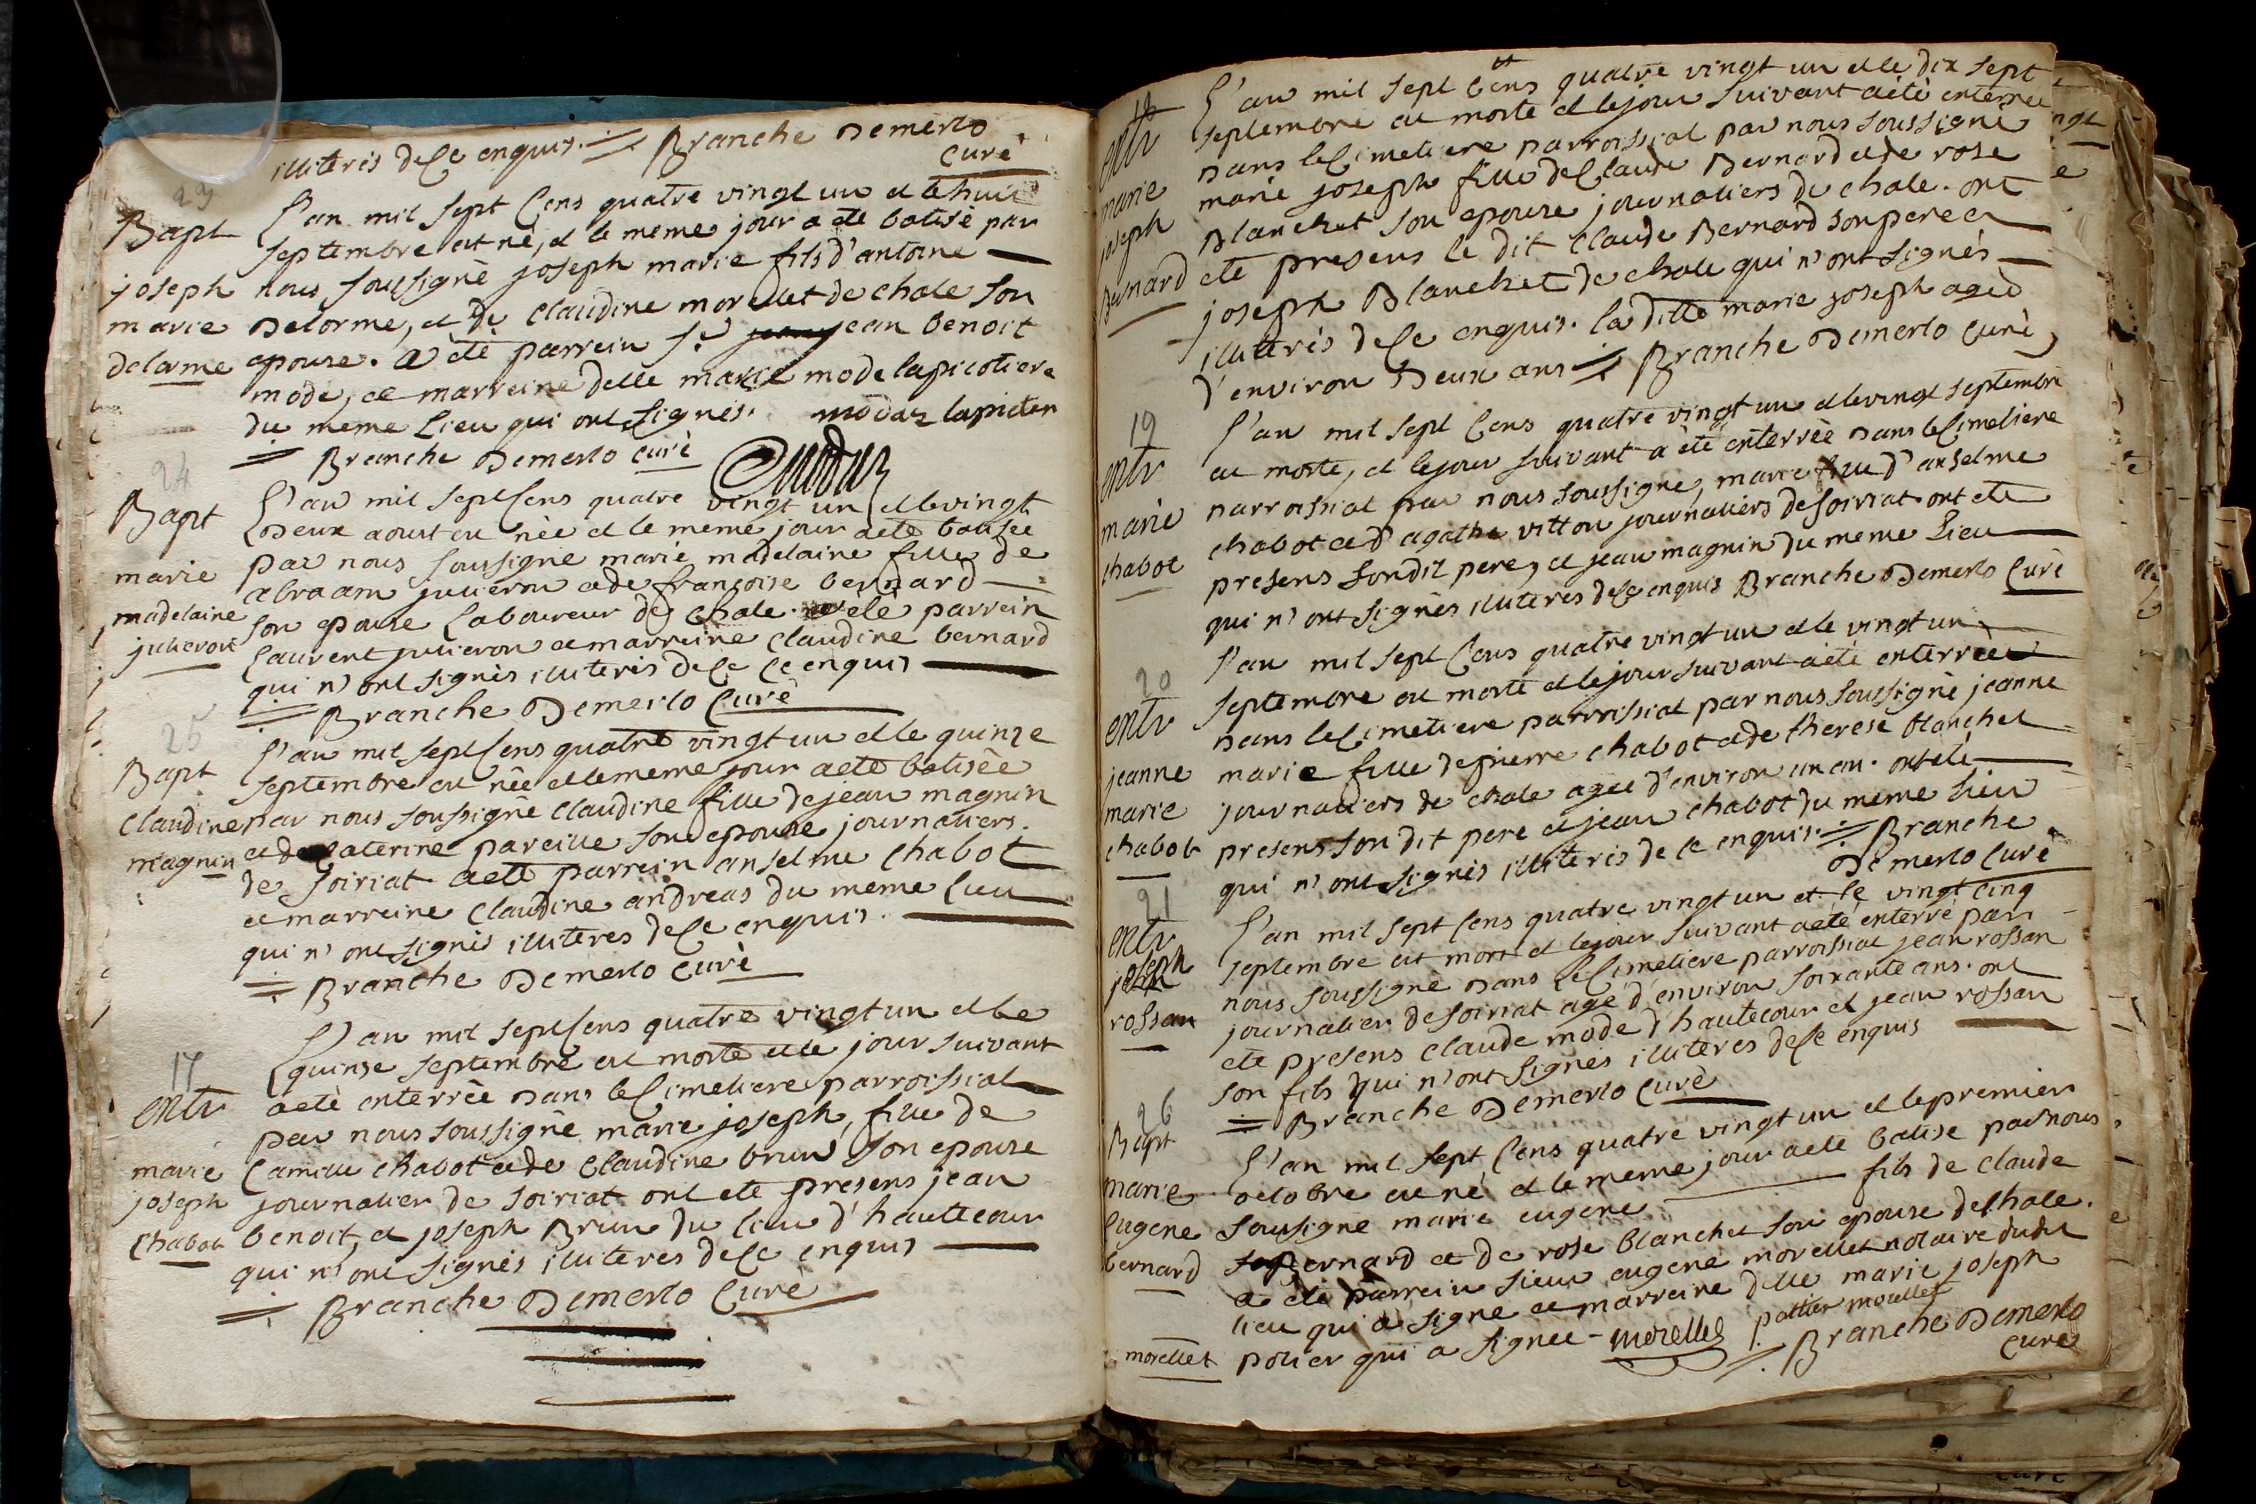 illiteris de ce enquis. Branche Demerlo
curè
23
Bapt
joseph
marie
delorme
L'an mil sept Cens quatre vingt un et le huit
septembre est né, et le meme jour a eté batisé par
nous soussigné joseph marie fils d'antoine
Delorme, et de Claudine morellet de chale son
epouse. a eté parrein Sr jean benoit
mode, et marreine delle marie mode lapicotiere
du meme Lieu qui ont signés. modaz lapicter
Branche Demerlo curè
24
Bapt
marie
madelaine
julieron
L'an mil sept Cens quatre vingt un et le vingt
Deux aoust est née et le meme jour a eté batisée
par nous soussigné marie madelaine fille de
abraam julieron et de françoise bernard
son epouse Laboureur de chale. a eté parrein
Laurent julieron et marreine Claudine bernard
qui n'ont signés illiteris de ce ce enquis
Branche Demerlo Curè
25
Bapt
Claudine
magnin
L'an mil sept Cens quatre vingt un et le quinze
septembre est née et le meme jour a eté batisèe
par nous soussigné Claudine fille de jean magnin
et de Caterine pareille son epouse journaliers
de soiriat a eté parrein anselme Chabot
et marreine Claudine andreas du meme Lieu
qui n'ont signés illiteres de ce enquis.
Branche Demerlo Curè
17
entr
marie
joseph
Chabot
L'an mil sept Cens quatre vingt un et le
quinse septembre est morte et le jour suivant
a eté enterrèe Dans le Cimetiere parroissial
par nous soussigné marie joseph, fille de
Camille Chabot et de Claudine brun son epouse
journalier de soiriat ont eté presens jean
benoit, et joseph Brun du lieu d'hautecour
qui n'ont signés illiteres de ce enquis
Branche Demerlo Curè
18
entr
marie
joseph
Bernard
L'an mil sept Cens quatre vingt un et le dix sept
septembre est morte et le jour suivant a eté enterrée
Dans le Cimetiere parroissial par nous soussigné
marie joseph fille de Claude Bernard et de rose
Blanchet son epouse journaliers de chale. ont
eté presens le dit Claude Bernard son pere et
joseph Blanchet de chale qui n'ont signés
illiterés de ce enquis. la ditte marie joseph aged
d'environ Deux ans Branche Demerlo Curè
19
entr
marie
chabot
L'an mil sept Cens quatre vingt un et le vingt septembre
est morte, et le jour suivant a eté enterrèe Dans le Cimetiere
parroissial par nous soussigné, marie fille d'anselme
chabot et d'agathe vitton journaliers de soiriat ont eté
presens son dit pere, et jean magnin du meme Lieu
qui n'ont signés illiteres de ce enquis Branche Demerlo Curè
20
entr
jeanne
marie
chabot
L'an mil sept Cens quatre vingt un et le vingt un
septembre est morte et le jour suivant a eté enterrée
Dans le Cimetiere parroissial par nous soussigné jeanne
marie fille de pierre chabot et de therese blanchet
journaliers de chale agée d'environ un an. ont eté
presens son dit pere et jean chabot du meme Lieu
qui n'ont signés illiteris de ce enquis. Branche
Demerlo Curè
21
entr
joseph
rossan
L'an mil sept Cens quatre vingt un et le vingt cinq
septembre est mort et le jour suivant a eté enterré par
nous soussigné Dans le Cimetiere parroissial jean rossan
journalier de soiriat agé d'environ soixante ans. ont
eté presens Claude mode d'hautecour et jean rossan
son fils qui n'ont signés illiteres de ce enquis
Branche Demerlo Curè
26
Bapt
marie
Eugene
bernard
L'an mil sept Cens quatre vingt un et le premier
octobre est né et le meme jour a eté batisé par nous
soussigné marie eugene fils de Claude
Bernard et de rose blanchet son epouse de Chale.
a eté parrein sieur eugene morellet notaire dudit
lieu qui a signé et marreine delle marie joseph
potier qui a signee - morellet pottier morellet
morellet
Branche Demerlo
Curè